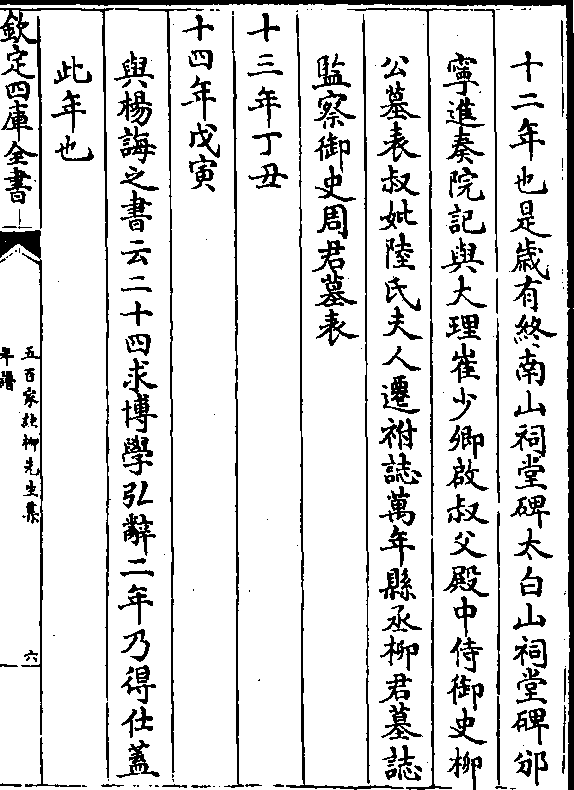 十二年也是歲有終南山祠堂碑太白山祠堂碑邠
寧進奏院記與大理崔少卿啟叔父殿中侍御史柳
公墓表叔妣陸氏夫人遷祔誌萬年縣丞柳君墓誌
監察御史周君墓表
十三年丁丑
十四年戊寅
與楊誨之書云二十四求博學弘辭二年乃得仕蓋
此年也
欽定四庫全書
五百家註柳先生集
年譜
六